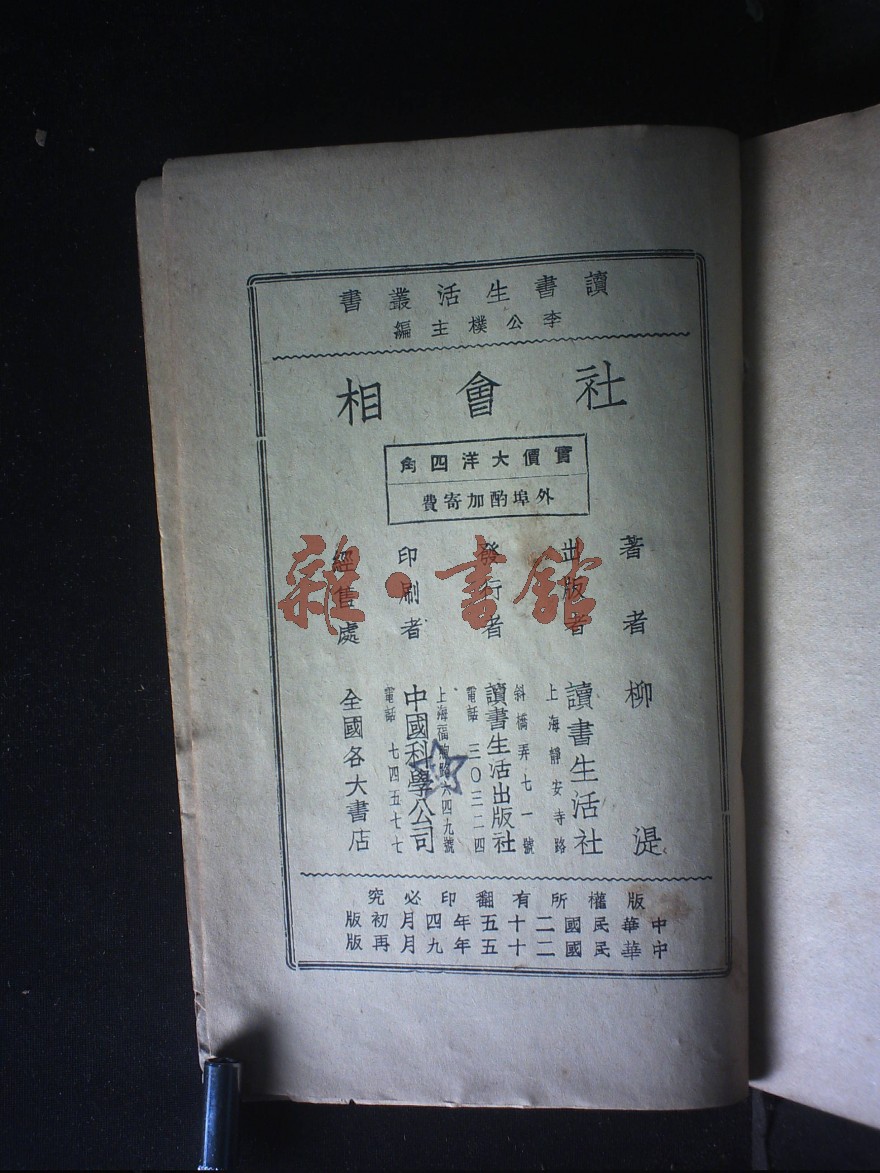 讀書生活叢書
李公樸主編
社會相
實價大洋四角
外埠酌加寄費
著者 柳湜
出版者 讀書生活社
上海靜安寺路
斜橋弄七一號
發行者 讀書生活出版社
電話 三〇三二四
印刷者 中國科學公司
電話 七四五七七
經售處 全國各大書店
版權所有翻印必究
中華民國二十五年四月初版
中華民國二十五年九月再版
雜·書館